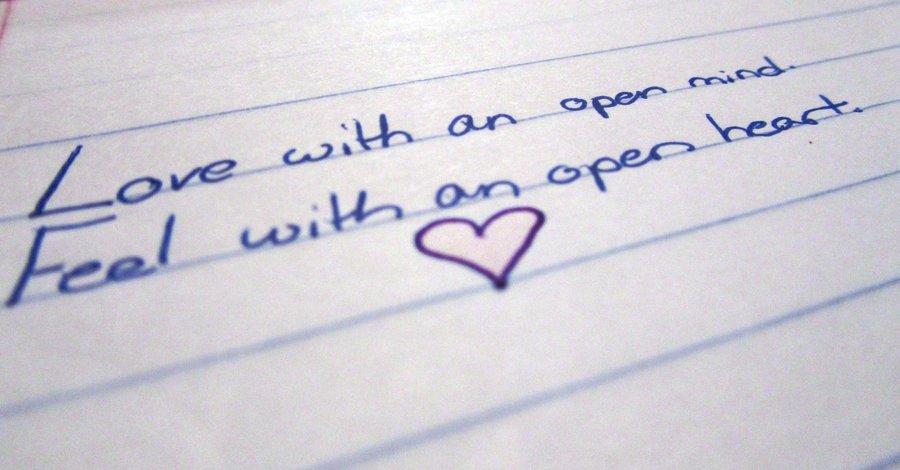 Love with an open mind.
Feel with an open heart.